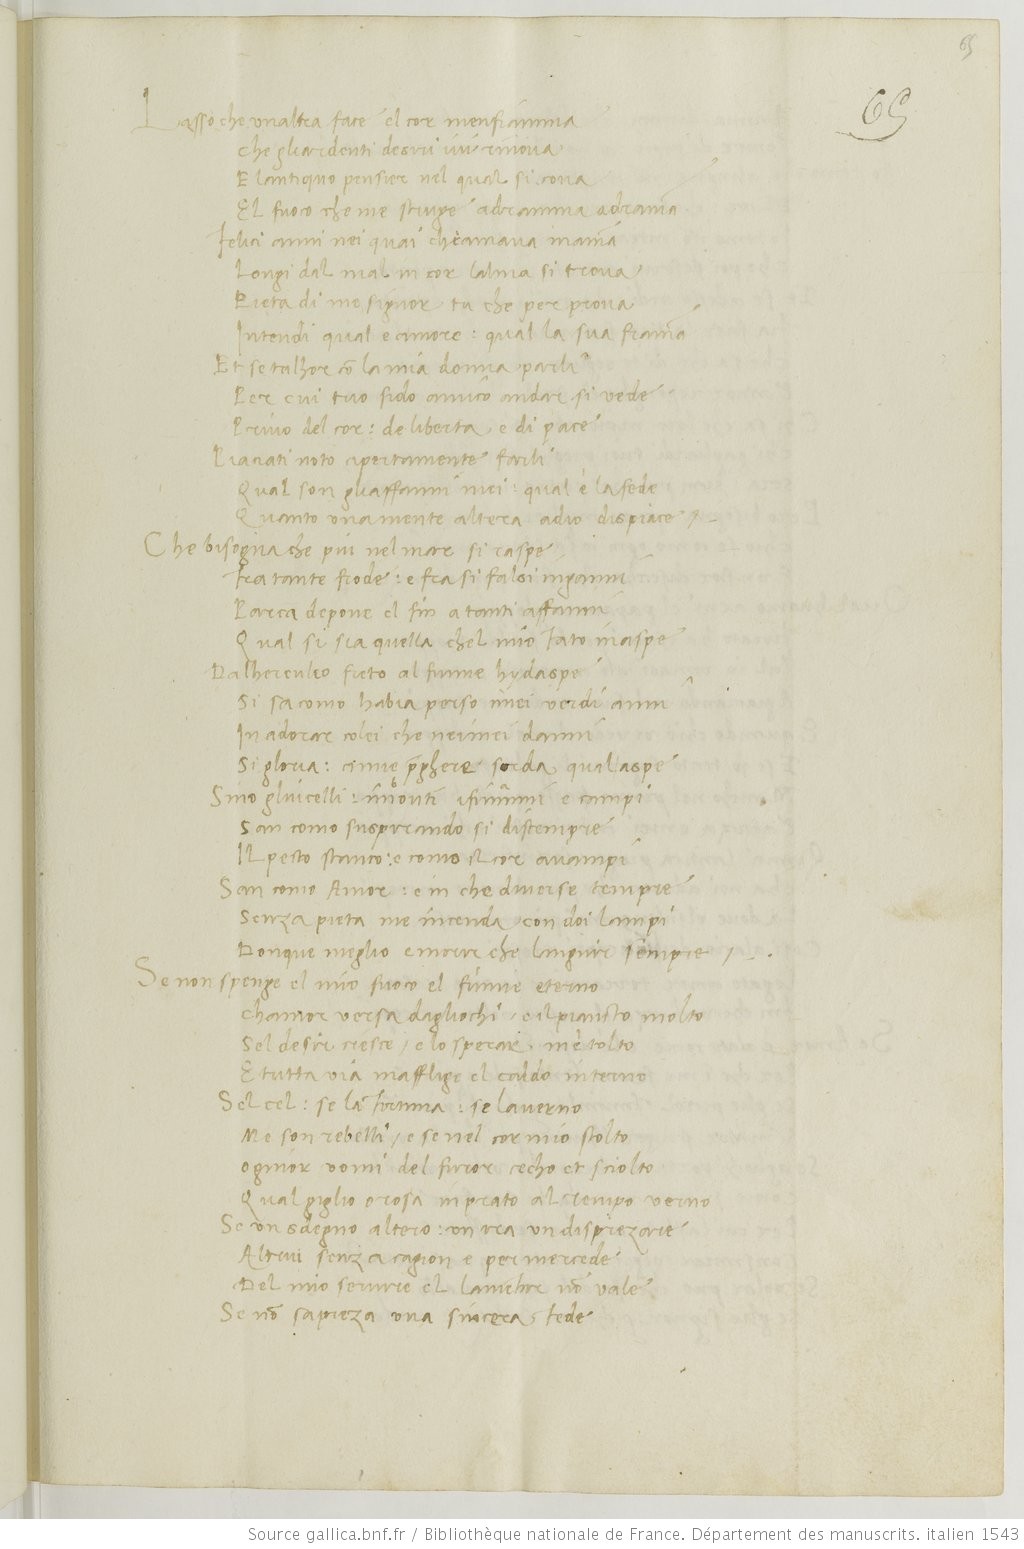 65
65
Lasso che unaltra face el cor menfiamma
che gliardenti desiri vivi rinova
E lantiquo pensier nel qual si cova
El fuoco che me struge adramma adrama
Felici anni nei quai che amava mama
Longi dal mal in cor lalma si trova
Pieta di me signor tu che per prova
Intendi qual e amore : qual la sua fiama
Et se talhor cō la mia donna parli
Per cui tuo fido amico andar si vede
Privo del cor : de liberta e di pace
Piaciati noto apertamente farli
Qual son gliaffanni miei : qual è la fede
Quanto una mente altera adio dispiace
Che bisogna che piu nel mar si raspe
Fra tante frode : e fra si falsi inganni
Parca depone el fin a tanti affanni
Qual si sia quella chel mio fato inaspe
Dalherculeo freto al fiume hydaspe
Si sa como habia perso i miei verdi anni
In adorar colei che nei miei danni
Si gloria : e mie p̄ghiere sorda qual aspe
Sano gliucelli : i monti i fiumi e campi
San como suspirando si distempre
Il pecto stanco : e como il cor avampi
San como Amor : e in che diverse tempre
Senza pieta me incenda con doi lampi
Donque meglio e morir che languir sempre
Se non spenge el mio fuoco el fiume eterno
chamor versa dagliochi / e il piancto molto
Sel desir cresce / e lo sperar mè tolto
E tutta via mafflige el caldo interno
Sel cel : se la fortuna : se laverno
Me son rebelli / e se nel cor mio stolto
ognior vomi del furor cecho et sciolto
Qual giglio o rosa in prato al tempo verno
Se un sdegno altero : un ira un disprezare
Altrui senza cagion e per mercede
Del mio servire el lamentar nō vale
Se nō sapreza una sincera fede
Source gallica.bnf.fr / Bibliothèque nationale de France. Département des manuscrits. italien 1543